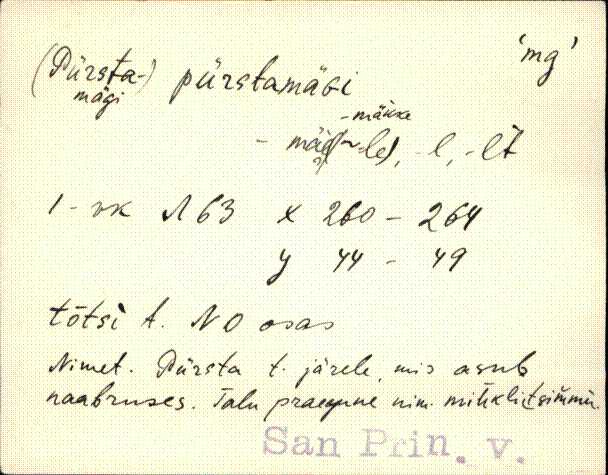 'mg'
(Pürsta-) pürstamäɢi
mägi
-mäkke
-le), -l, -lt
1-vk N 63 x 260 - 264
y 44 - 49
tõtsi t. NO osas
Nimet. Pürsta t. järele, mis asub
naabruses. Talu praegune nim.
San Prin. v.